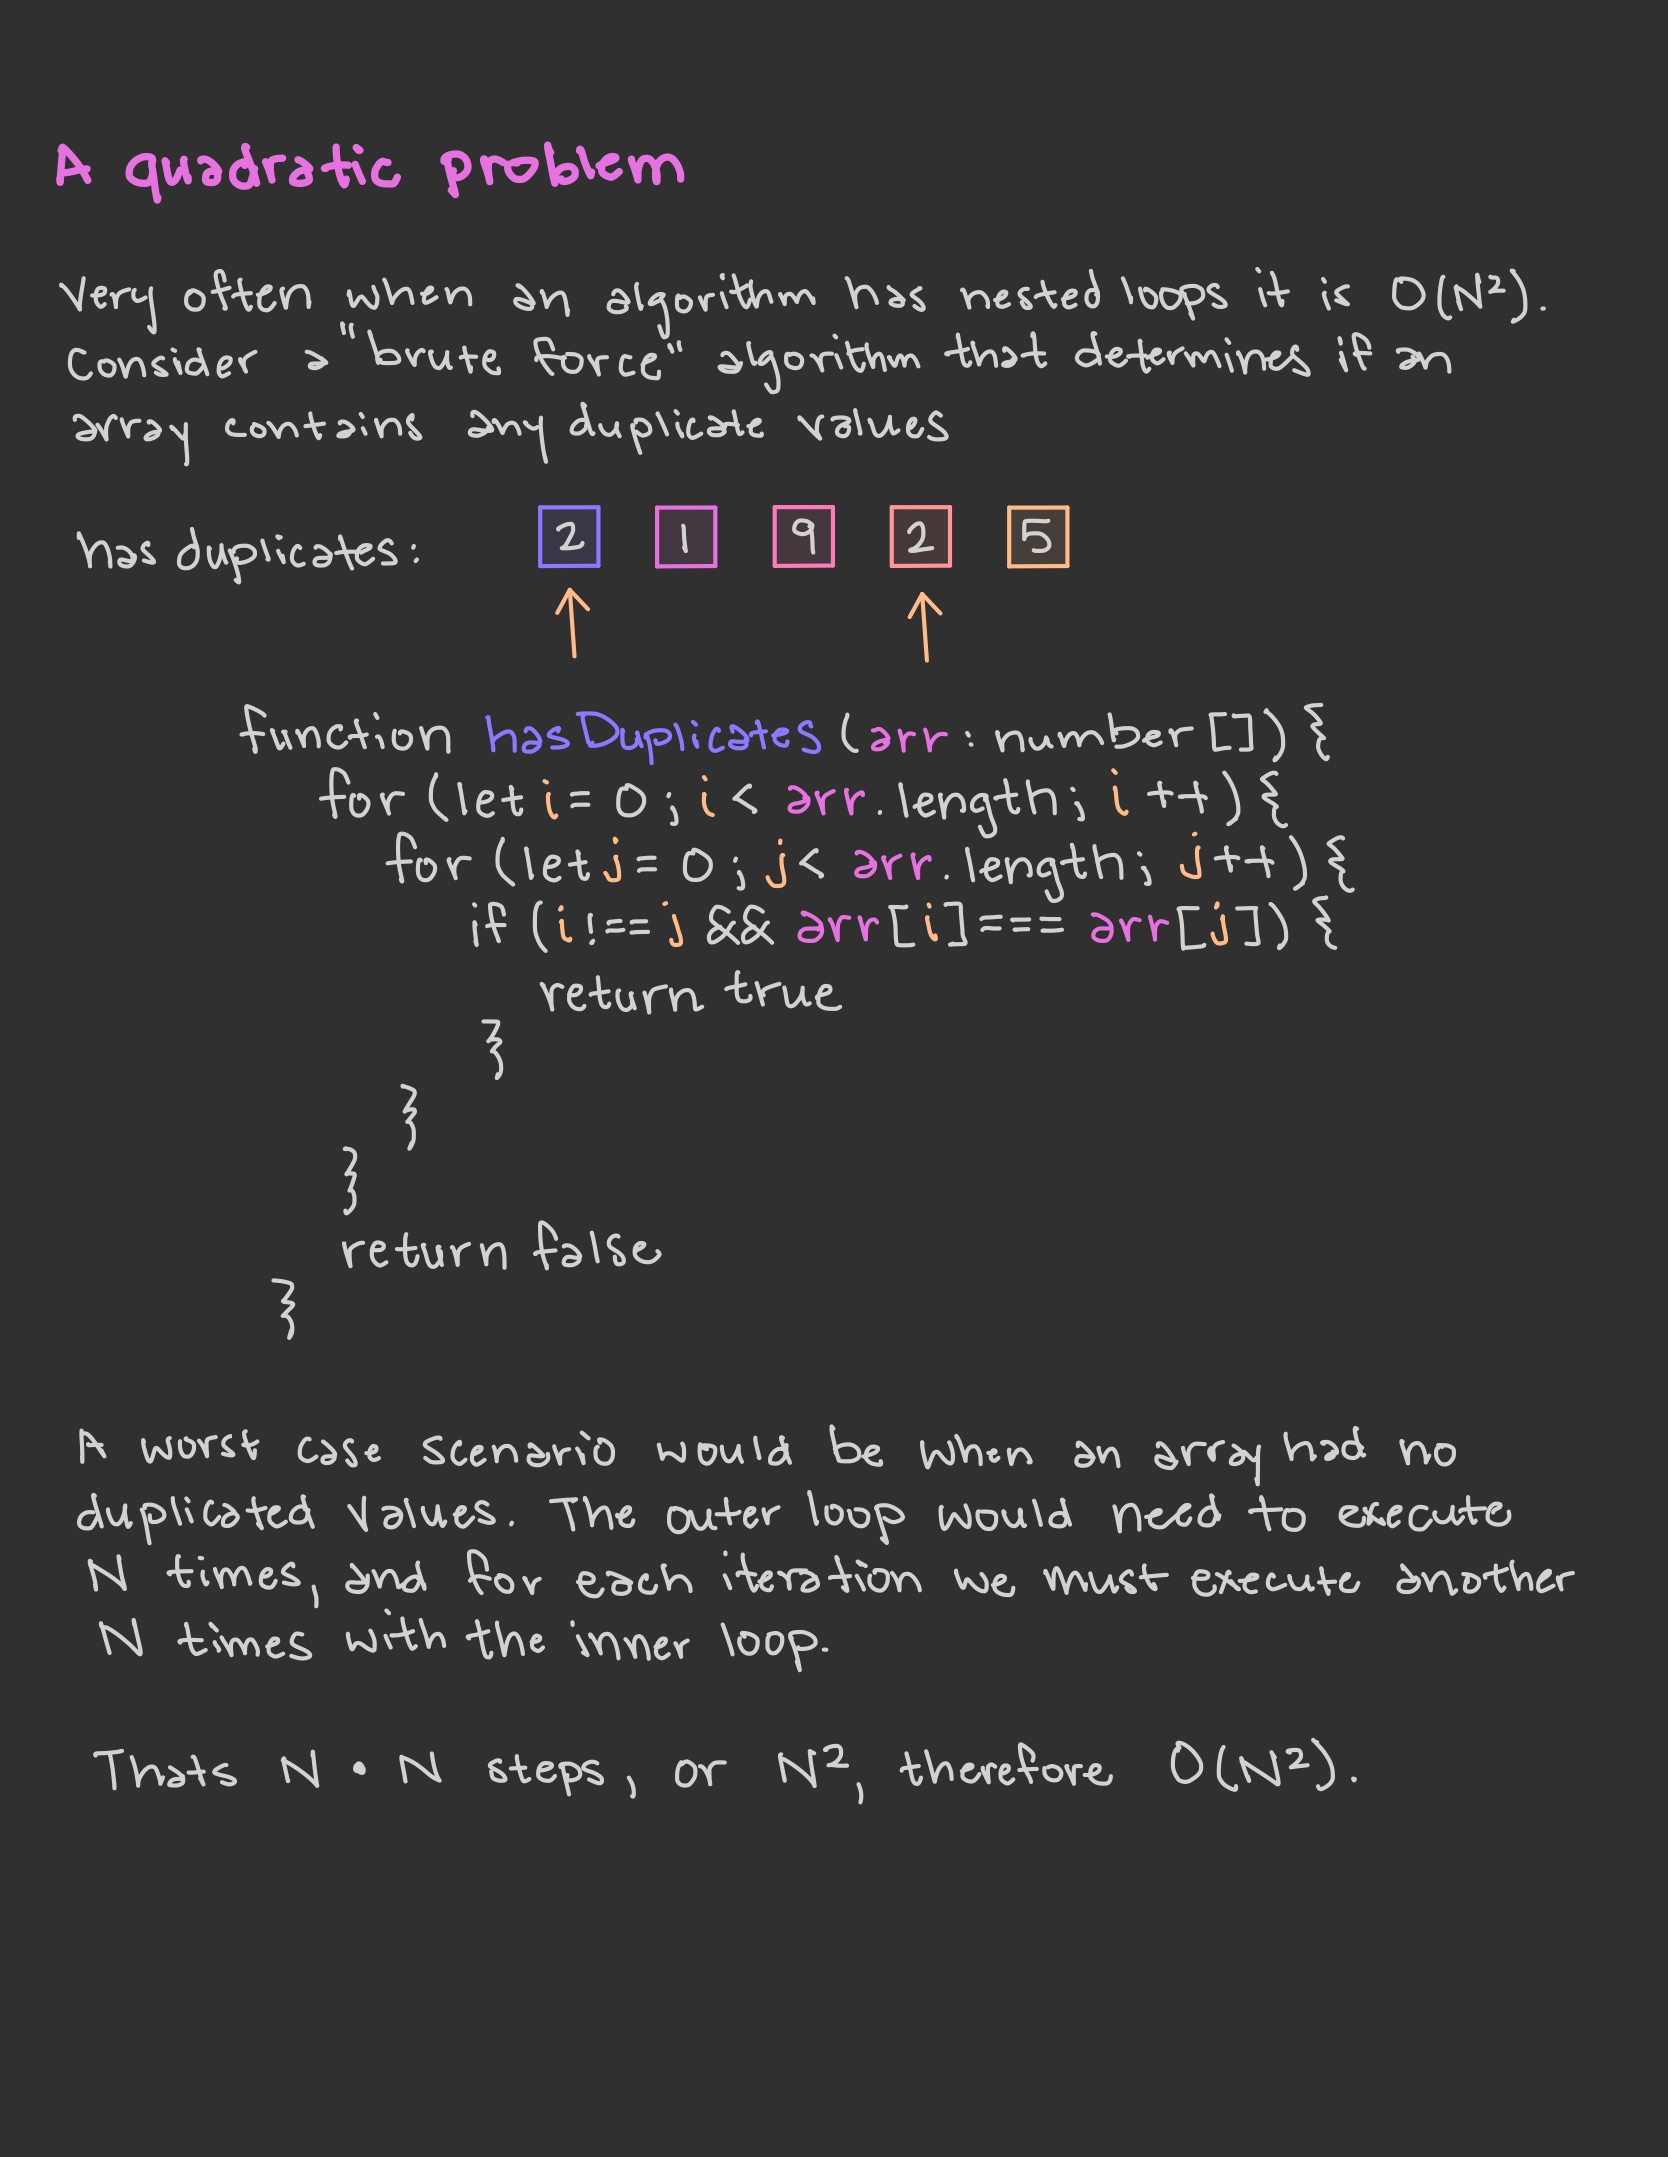 A quadratic problem
Very often when an algorithm has nested loops it is O(N²).
Consider a "brute force" algorithm that determines if an
array contains any duplicate values
has duplicates: 2 1 9 2 5
function hasDuplicates (arr: number[]) {
for (let i = 0; i < arr.length; i++) {
for (let j = 0; j < arr.length; j++) {
if (i !== j && arr[i] === arr[j]) {
return true
}
}
}
return false
}
A worst case scenario would be when an array had no
duplicated values. The outer loop would need to execute
N times, and for each iteration we must execute another
N times with the inner loop.
Thats N • N steps, or N², therefore O(N²).